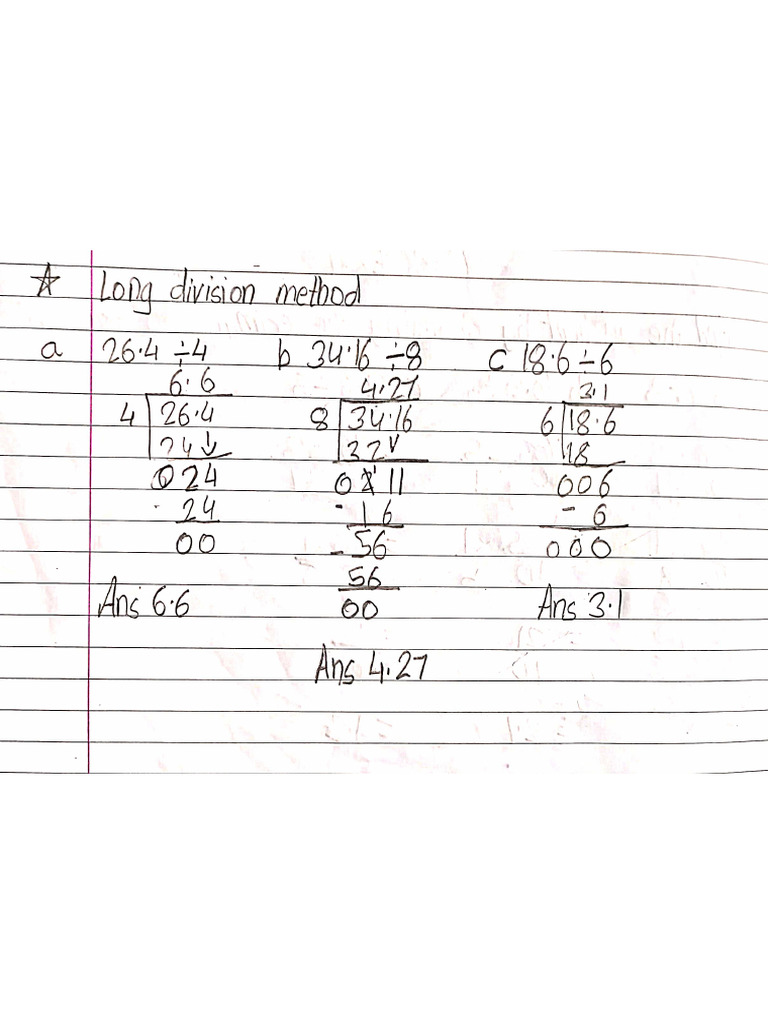 ☆ Long division method
a 26.4 ÷ 4 b 34.16 ÷ 8 c 18.6 ÷ 6
6.6 4.27 3.1
4 26.4 8 34.16 6 18.6
24 ↓ 32 ↓ 18
024 0211 006
- 24 - 16 - 6
00 - 56 000
56
Ans 6.6 00 Ans 3.1
Ans 4.27